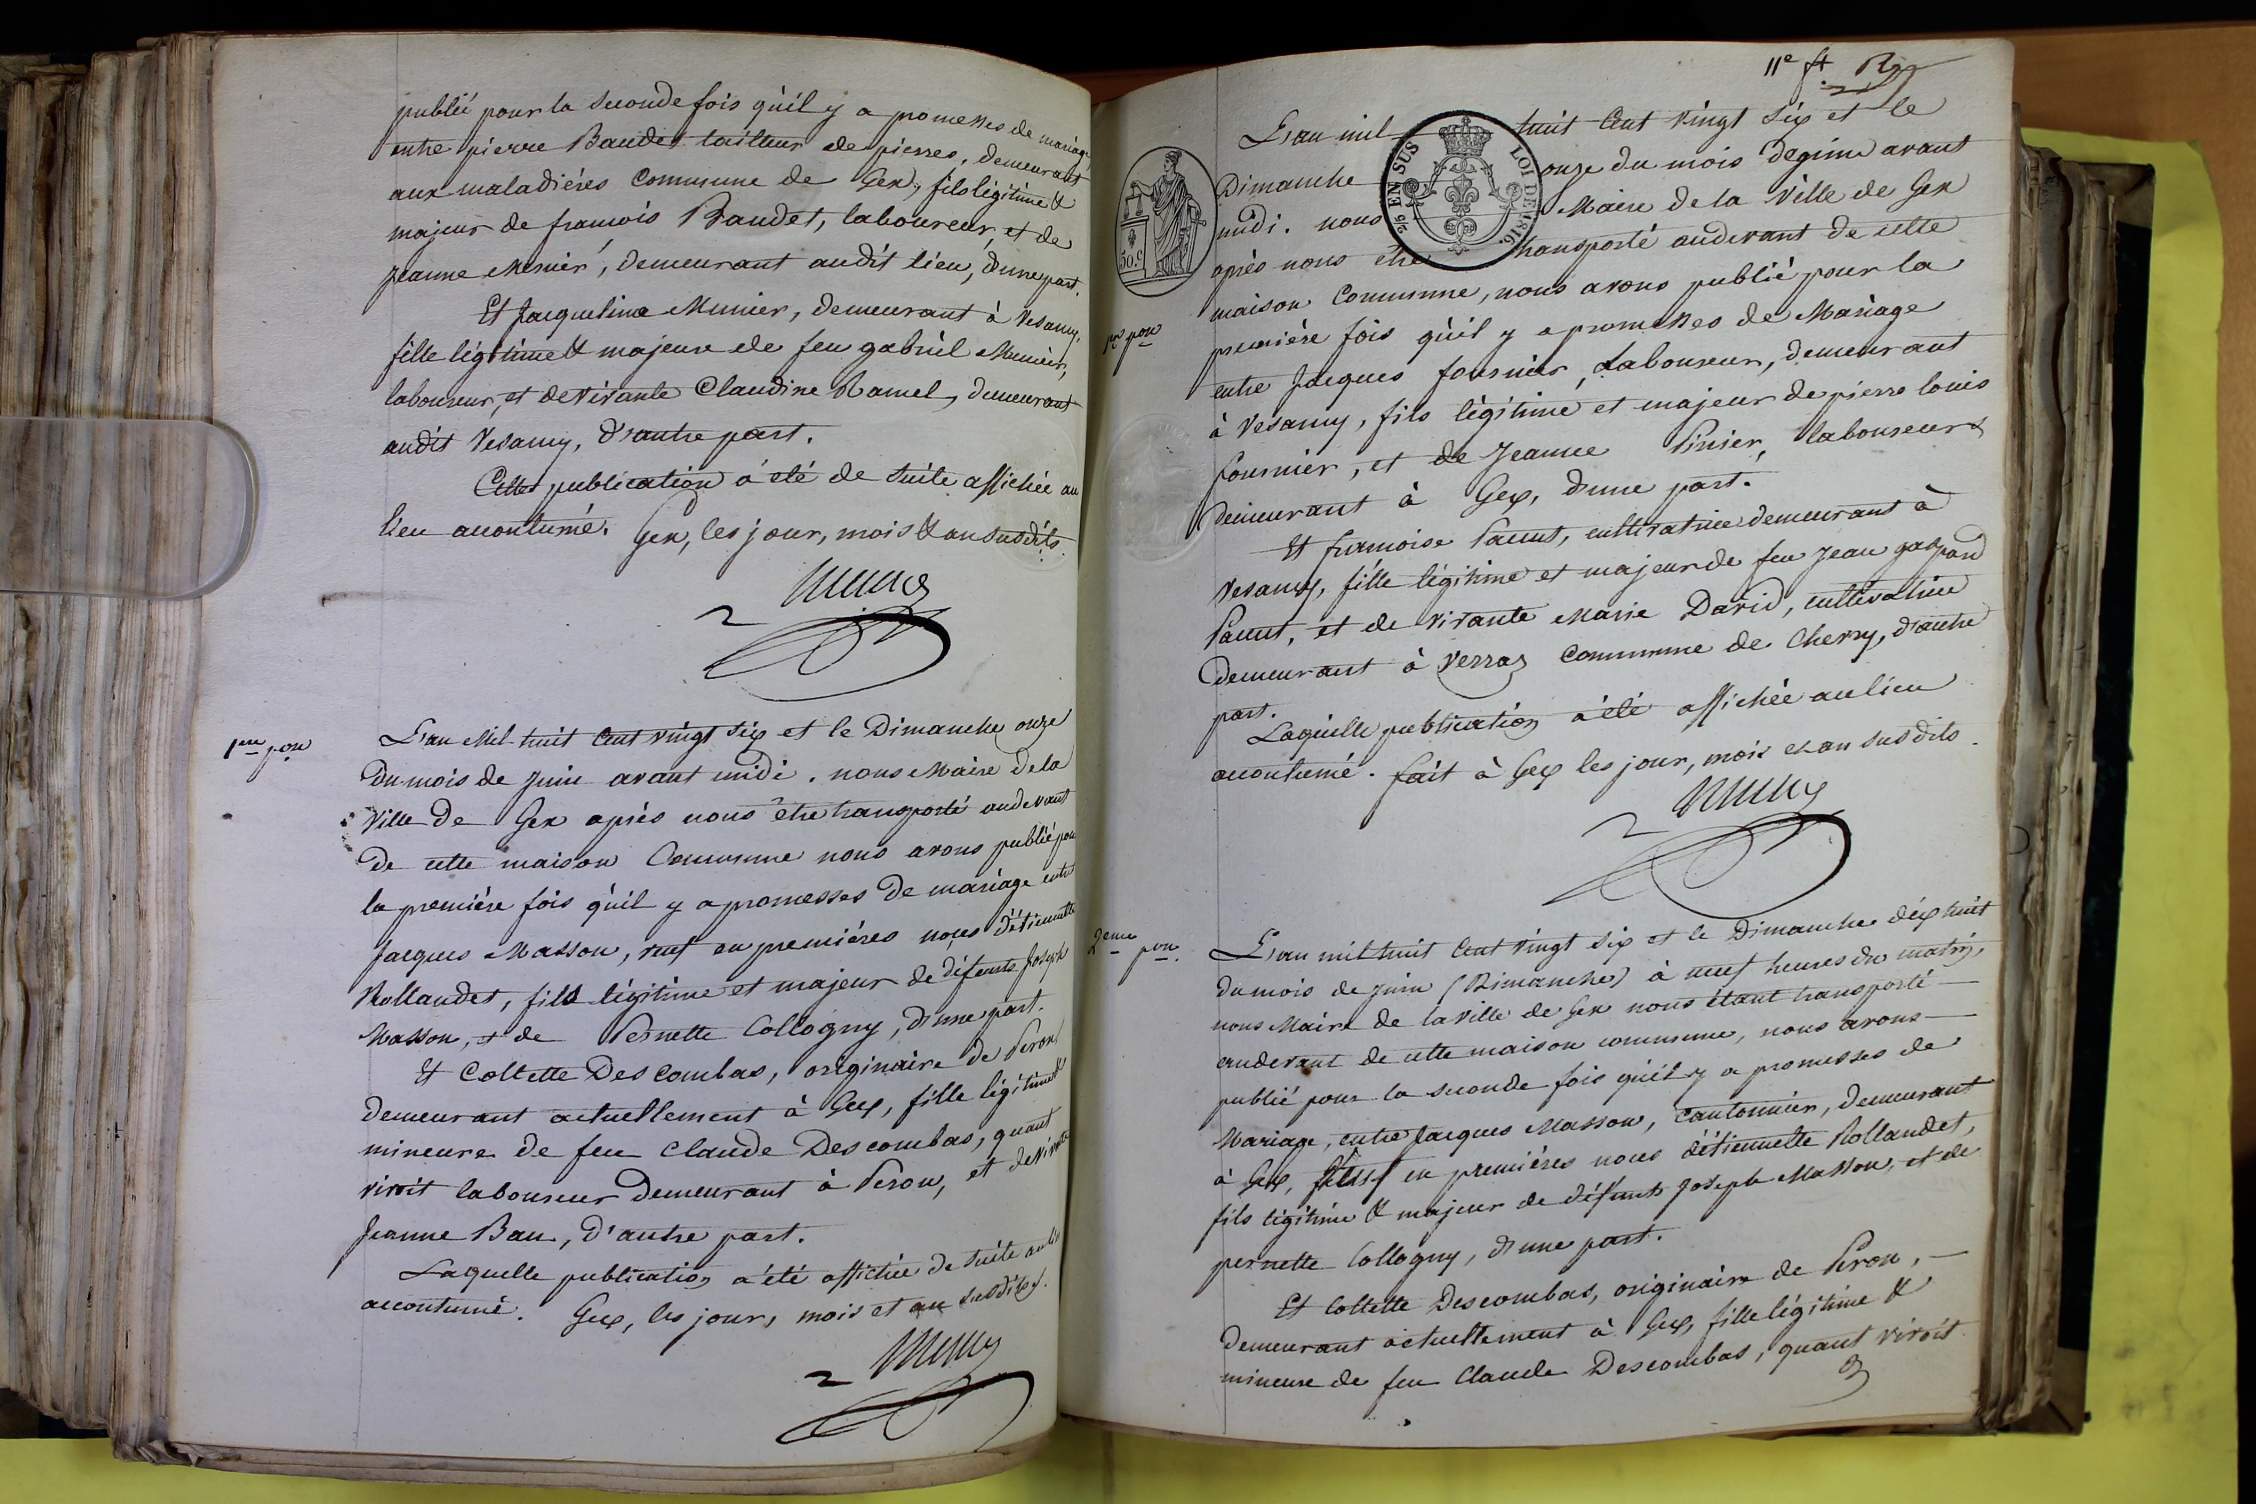 publié pour la seconde fois qu'il y a promesses de mariage
entre pierre Baudet tailleur de pierres, demeurant
aux maladiéres Commune de Gex, fils légitime &
majeur de francois Baudet, laboureur, et de
jeanne Menier, demeurant audit lieu, d'une part.
Et Jacqueline Munier, demeurant à Vesancy,
fille légitime & majeure de feu gabriel Munier,
laboureur, et de vivante Claudine Ramel, demeurant
audit Vesancy, d'autre part.
Cette publication a été de suite affichée au
lieu accoutumé. Gex, les jour, mois & an susdits.
1ere pon
L'an Mil huit Cent vingt six et le Dimanche onze
du mois de juin avant midi. nous Maire de la
Ville de Gex après nous être transporté audevant
de cette maison Commune nous avons publié pour
la première fois qu'il y a promesses de mariage entre
Jacques Masson, veuf en premiéres noces d'étiennette
Rollandet, fils légitime et majeur de défunts Joseph
Masson, et de Pernette Collogny, d'une part.
Et Collette Descombas, originaire de Peron,
demeurant actuellement à Gex, fille légitime &
mineure de feu Claude Descombas, quant
vivoit laboureur demeurant à Peron, et de vivante
Jeanne Bau, d'autre part.
Laquelle publication a été affichée de suite au lieu
accoutumé. Gex, les jour, mois et an susdits.
11e ft
L'an mil huit Cent vingt six et le
Dimanche onze du mois de juin avant
midi. nous Maire de la Ville de Gex
après nous être transporté audevant de cette
maison Commune, nous avons publié pour la
1re pon
première fois qu'il y a promesses de Mariage
entre Jacques fournier, Laboureur, demeurant
à Vesancy, fils légitime et majeur de pierre louis
fournier, et de Jeanne Pinier, laboureurs
demeurant à Gex, d'une part.
Et francoise Pacut, cultivatrice demeurant à
Vesancy, fille légitime et majeur de feu Jean gaspard
Pacut, et de vivante Marie David, cultivatrice
demeurant à Verraz Commune de Chevry, d'autre
part.
Laquelle publication a été affichée au lieu
accoutumé. fait à Gex les jour, mois et an susdits.
2eme pon.
L'an mil huit Cent vingt six et le Dimanche dix huit
du mois de juin (Dimanche) à neuf heures du matin,
nous Maire de la ville de Gex nous étant transporté
audevant de cette maison commune, nous avons
publié pour la seconde fois qu'il y a promesses de
Mariage, entre Jacques Masson, cantonnier, demeurant
à Gex, veuf en premières noces d'étiennette Rollandet,
fils légitime & majeur de défunts Joseph Masson, et de
pernette Collogny, d'une part.
Et Collette Descombas, originaire de Peron,
demeurant actuellement à Gex, fille légitime &
mineure de feu Claude Descombas, quant vivoit
EN SUS
LOI DE 1816.
50.c